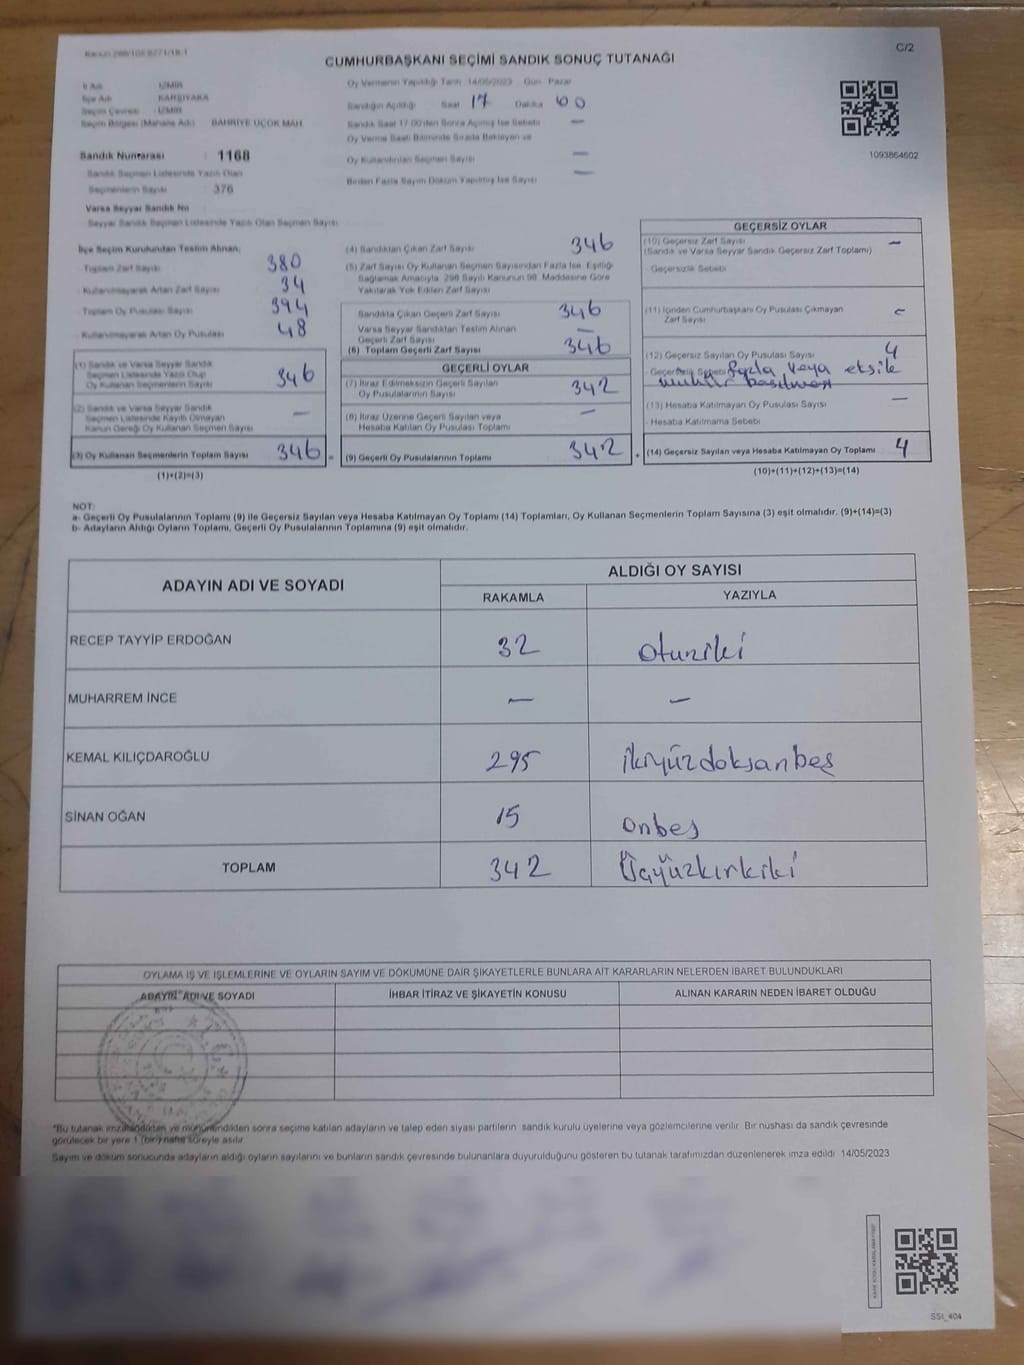 C/2
CUMHURBAŞKANI SEÇİMİ SANDIK SONUÇ TUTANAĞI
İl Adı İZMİR
İlçe Adı KARŞIYAKA
Seçim Çevresi : İZMİR
Seçim Bölgesi (Mahalle Adı) BAHRİYE ÜÇOK MAH.
Sandık Numarası : 1168
Sandık Seçmen Listesinde Yazılı Olan
Seçmenlerin Sayısı : 376
Varsa Seyyar Sandık No
Seyyar Sandık Seçmen Listesinde Yazılı Olan Seçmen Sayısı
Oy Vermenin Yapıldığı Tarih 14/05/2023 Gün Pazar
Sandığın Açıldığı Saat 17 Dakika 00
Sandık Saat 17:00'den Sonra Açılmış İse Sebebi —
Oy Verme Saati Bitiminde Sırada Bekleyen ve
Oy Kullandırılan Seçmen Sayısı —
Birden Fazla Sayım Döküm Yapılmış İse Sayısı —
1093864602
İlçe Seçim Kurulundan Teslim Alınan;
Toplam Zarf Sayısı 380
- Kullanılmayarak Artan Zarf Sayısı 34
- Toplam Oy Pusulası Sayısı 394
- Kullanılmayarak Artan Oy Pusulası 48
(1) Sandık ve Varsa Seyyar Sandık
Seçmen Listesinde Yazılı Olup
Oy Kullanan Seçmenlerin Sayısı 346
(2) Sandık ve Varsa Seyyar Sandık
Seçmen Listesinde Kayıtlı Olmayan
Kanun Gereği Oy Kullanan Seçmen Sayısı —
(3) Oy Kullanan Seçmenlerin Toplam Sayısı 346 =
(1)+(2)=(3)
(4) Sandıktan Çıkan Zarf Sayısı 346
(5) Zarf Sayısı Oy Kullanan Seçmen Sayısından Fazla İse, Eşitliği
Sağlamak Amacıyla, 298 Sayılı Kanunun 98. Maddesine Göre
Yakılarak Yok Edilen Zarf Sayısı
Sandıkta Çıkan Geçerli Zarf Sayısı 346
Varsa Seyyar Sandıktan Teslim Alınan
Geçerli Zarf Sayısı —
(6) Toplam Geçerli Zarf Sayısı 346
GEÇERLİ OYLAR
(7) İtiraz Edilmeksizin Geçerli Sayılan
Oy Pusulasının Sayısı 342
(8) İtiraz Üzerine Geçerli Sayılan veya
Hesaba Katılan Oy Pusulası Toplamı —
(9) Geçerli Oy Pusulalarının Toplamı 342 +
GEÇERSİZ OYLAR
(10) Geçersiz Zarf Sayısı —
(Sandık ve Varsa Seyyar Sandık Geçersiz Zarf Toplamı)
- Geçersizlik Sebebi
(11) İçinden Cumhurbaşkanı Oy Pusulası Çıkmayan
Zarf Sayısı —
(12) Geçersiz Sayılan Oy Pusulası Sayısı 4
- Geçersizlik Sebebi fazla veya eksik
mühür basılması
(13) Hesaba Katılmayan Oy Pusulası Sayısı —
- Hesaba Katılmama Sebebi
(14) Geçersiz Sayılan veya Hesaba Katılmayan Oy Toplamı 4
(10)+(11)+(12)+(13)=(14)
NOT:
a- Geçerli Oy Pusulalarının Toplamı (9) ile Geçersiz Sayılan veya Hesaba Katılmayan Oy Toplamı (14) Toplamları, Oy Kullanan Seçmenlerin Toplam Sayısına (3) eşit olmalıdır. (9)+(14)=(3)
b- Adayların Aldığı Oyların Toplamı, Geçerli Oy Pusulalarının Toplamına (9) eşit olmalıdır.
ADAYIN ADI VE SOYADI ALDIĞI OY SAYISI
RAKAMLA YAZIYLA
RECEP TAYYİP ERDOĞAN 32 otuziki
MUHARREM İNCE — —
KEMAL KILIÇDAROĞLU 295 ikiyüzdoksanbeş
SİNAN OĞAN 15 onbeş
TOPLAM 342 Üçyüzkırkiki
OYLAMA İŞ VE İŞLEMLERİNE VE OYLARIN SAYIM VE DÖKÜMÜNE DAİR ŞİKAYETLERLE BUNLARA AİT KARARLARIN NELERDEN İBARET BULUNDUKLARI
ADAYIN ADI VE SOYADI İHBAR İTİRAZ VE ŞİKAYETİN KONUSU ALINAN KARARIN NEDEN İBARET OLDUĞU
*Bu tutanak imzalandıktan ve mühürlendikten sonra seçime katılan adayların ve talep eden siyasi partilerin sandık kurulu üyelerine veya gözlemcilerine verilir. Bir nushası da sandık çevresinde
görülecek bir yere 1 (bir) hafta süreyle asılır.
Sayım ve döküm sonucunda adayların aldığı oyların sayılarını ve bunların sandık çevresinde bulunanlara duyurulduğunu gösteren bu tutanak tarafımızdan düzenlenerek imza edildi. 14/05/2023
SSt_404